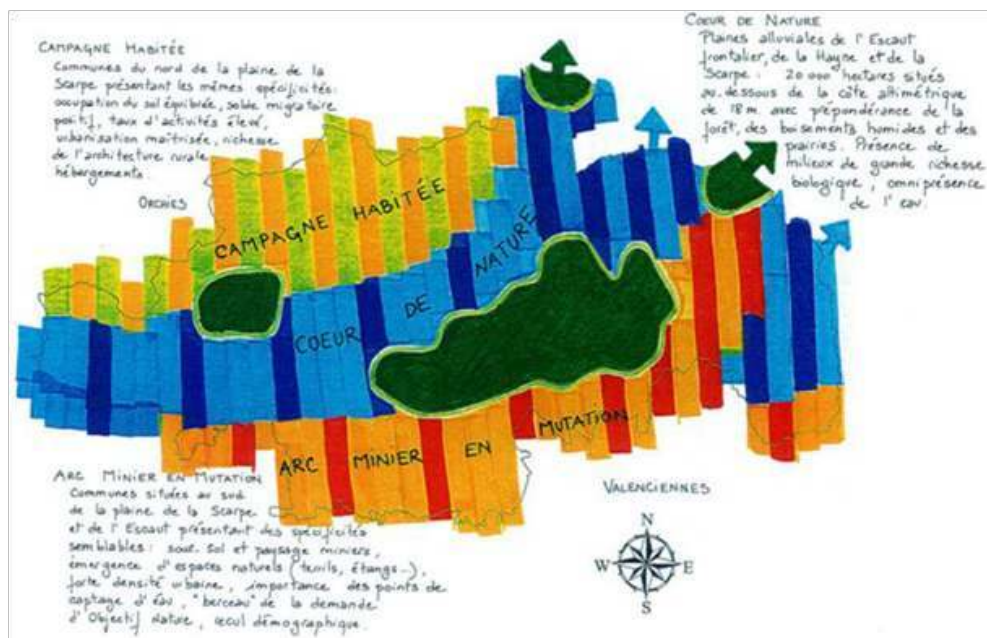 CAMPAGNE HABITÉE
Communes du nord de la plaine de la
Scarpe présentant les mêmes spécificités:
occupation du sol équilibrée, solde migratoire
positif, taux d'activités élevé,
urbanisation maîtrisée, richesse
de l'architecture rurale
hébergements
ORCHIES
COEUR DE NATURE
Plaines alluviales de l'Escaut
frontalier, de la Hayne et de la
Scarpe : 20 000 hectares situés
au dessous de la côte altimétrique
de 18 m. avec prépondérance de la
forêt, des boisements humides et des
prairies. Présence de
milieux de grande richesse
biologique, omniprésence
de l'eau.
CAMPAGNE HABITÉE
COEUR DE NATURE
ARC MINIER EN MUTATION
ARC MINIER EN MUTATION
Communes situées au sud
de la plaine de la Scarpe
et de l'Escaut présentant des spécificités
semblables : sous-sol et paysage miniers,
émergence d'espaces naturels (terrils, étangs...),
forte densité urbaine, importance des points de
captage d'eau, "berceau" de la demande
d'Objectif Nature, recul démographique.
VALENCIENNES
N
W E
S